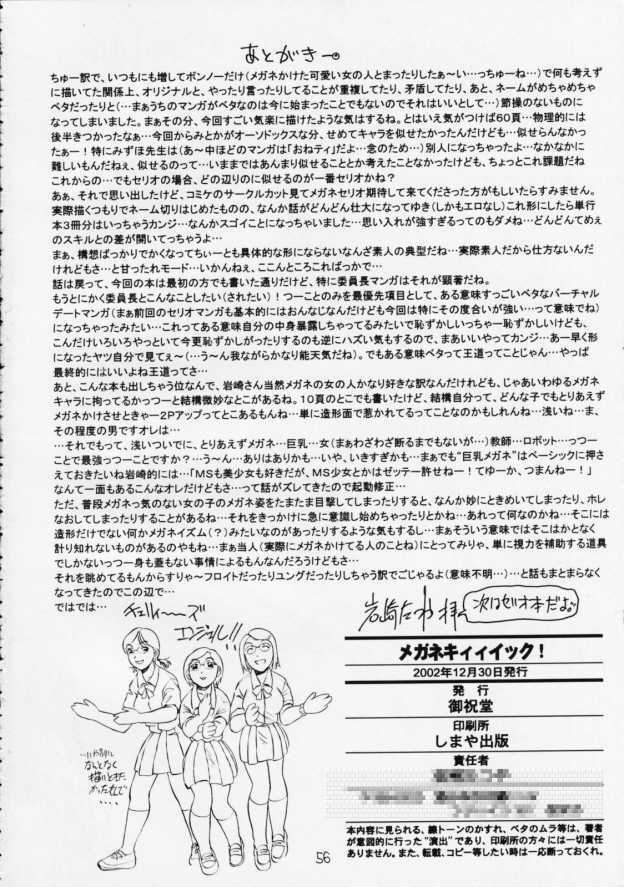 あとがきー。
ちゅー訳で、いつもにも増してボンノーだけ(メガネかけた可愛い女の人とまったりしたぁ〜い…っちゅーね…)で何も考えず
に描いてた関係上、オリジナルと、やったり言ったりしてることが重複してたり、矛盾してたり、あと、ネームがめちゃめちゃ
ベタだったりと(…まぁうちのマンガがベタなのは今に始まったことでもないのでそれはいいとして…)節操のないものに
なってしまいました。まぁその分、今回すごい気楽に描けたような気はするね。とはいえ気がつけば60頁…物理的には
後半きつかったなぁ…今回からみとかがオーソドックスな分、せめてキャラを似せたかったんだけども…似せらんなかっ
たぁー!特にみずほ先生は(あ〜中ほどのマンガは「おねティ」だよ…念のため…)別人になっちゃったよ…なかなかに
難しいもんだねぇ、似せるのって…いままではあんまり似せることとか考えたことなかったけども、ちょっとこれ課題だね
これからの…でもセリオの場合、どの辺りのに似せるのが一番セリオかね?
あぁ、それで思い出したけど、コミケのサークルカット見てメガネセリオ期待して来てくださった方がもしいたらすみません。
実際描くつもりでネーム切りはじめたものの、なんか話がどんどん壮大になってゆき(しかもエロなし)これ形にしたら単行
本3冊分はいっちゃうカンジ…なんかスゴイことになっちゃいました…思い入れが強すぎるってのもダメね…どんどんてめぇ
のスキルとの差が開いてっちゃうよ…
まぁ、構想ばっかりでかくなってちぃーとも具体的な形にならないなんざ素人の典型だね…実際素人だから仕方ないんだ
けれどもさ…と甘ったれモード…いかんねぇ、ここんところこればっかで…
話は戻って、今回の本は最初の方でも書いた通りだけど、特に委員長マンガはそれが顕著だね。
もうとにかく委員長とこんなことしたい(されたい)!つーことのみを最優先項目として、ある意味すっごいベタなバーチャル
デートマンガ(まぁ前回のセリオマンガも基本的にはおんなじなんだけども今回は特にその度合いが強い…って意味でね)
になっちゃったみたい…これってある意味自分の中身暴露しちゃってるみたいで恥ずかしいっちゃー恥ずかしいけども、
こんだけいろいろやっといて今更恥ずかしがったりするのも逆にハズい気もするので、まあいいやってカンジ…あー早く形
になったヤツ自分で見てぇ〜(…う〜ん我ながらかなり能天気だね)。でもある意味ベタって王道ってことじゃん…やっぱ
最終的にはいいよね王道ってさ…
あと、こんな本も出しちゃう位なんで、岩崎さん当然メガネの女の人かなり好きな訳なんだけれども、じゃあいわゆるメガネ
キャラに拘ってるかっつーと結構微妙なとこがあるね。10頁のとこでも書いたけど、結構自分って、どんな子でもとりあえず
メガネかけさせときゃー2Pアップってとこあるもんね…単に造形面で惹かれてるってことなのかもしれんね…浅いね…ま、
その程度の男ですオレは…
…それでもって、浅いついでに、とりあえずメガネ…巨乳…女(まぁわざわざ断るまでもないが…)教師…ロボット…っつー
ことで最強っつーことですか?…う〜ん…ありはありかも…いや、いきすぎかも…まぁでも“巨乳メガネ”はベーシックに押さ
えておきたいね岩崎的には…「MSも美少女も好きだが、MS少女とかはゼッテー許せねー!てゆーか、つまんねー!」
なんて一面もあるこんなオレだけどもさ…って話がズレてきたので起動修正…
ただ、普段メガネっ気のない女の子のメガネ姿をたまたま目撃してしまったりすると、なんか妙にときめいてしまったり、ホレ
なおしてしまったりすることがあるね…それをきっかけに急に意識し始めちゃったりとかね…あれって何なのかね…そこには
造形だけでない何かメガネイズム(?)みたいなのがあったりするような気もするし…まぁそういう意味ではそこはかとなく
計り知れないものがあるのやもね…まぁ当人(実際にメガネかけてる人のことね)にとってみりゃ、単に視力を補助する道具
でしかないっつー身も蓋もない事情によるもんなんだろうけどもさ…
それを眺めてるもんからすりゃ〜フロイトだったりユングだったりしちゃう訳でごじゃるよ(意味不明…)…と話もまとまらなく
なってきたのでこの辺で…
ではでは…
次はゼオ本だよ。
チェリィ〜〜ズ
エンジェル!!
なんとなく
描いときた
かった在で
・・・・
メガネキィィイック!
2002年12月30日発行
発 行
御祝堂
印刷所
しまや出版
責任者
本内容に見られる、線トーンのかすれ、ベタのムラ等は、著者
が意図的に行った“演出”であり、印刷所の方々には一切責任
ありません。また、転載、コピー等したい時は一応断っておくれ。
56